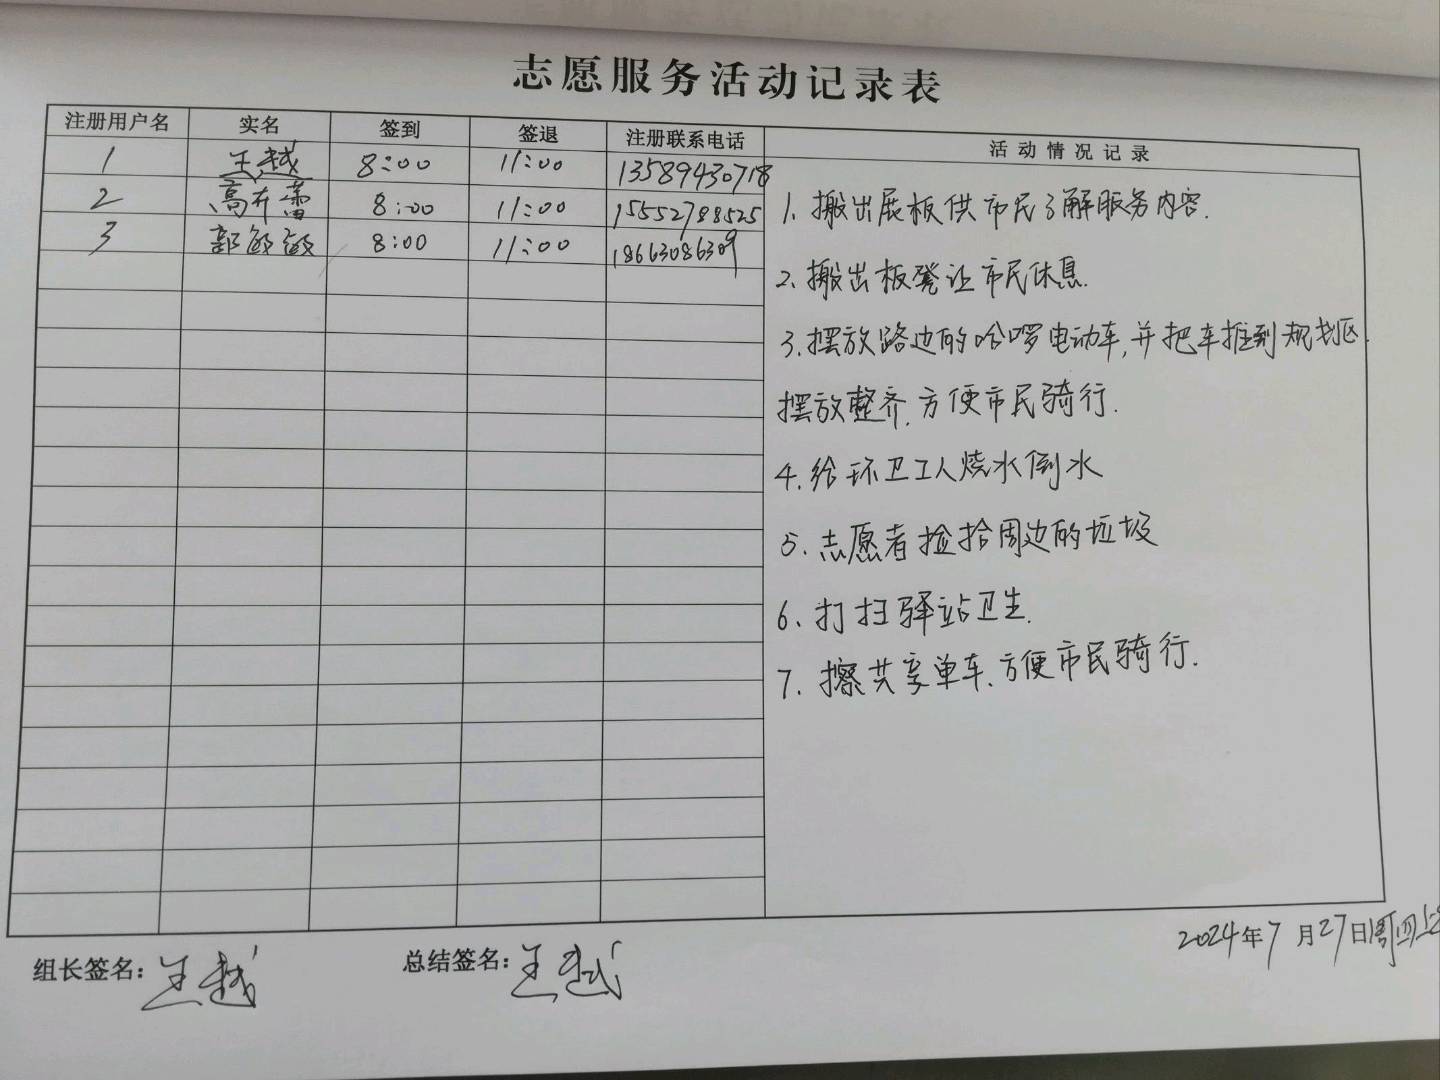 志愿服务活动记录表
注册用户名 实名 签到 签退 注册联系电话 活动情况记录
1 王越 8:00 11:00 13589430718
2 高卉蕾 8:00 11:00 15552788525
3 郭敏敏 8:00 11:00 18663086309
1、搬出展板供市民了解服务内容.
2、搬出板凳让市民休息.
3、摆放路边的哈啰电动车,并把车推到规划区.
摆放整齐、方便市民骑行.
4、给环卫工人烧水倒水
5、志愿者捡拾周边的垃圾
6、打扫驿站卫生.
7、擦共享单车、方便市民骑行.
2024年7月27日
组长签名:王越 总结签名:王越